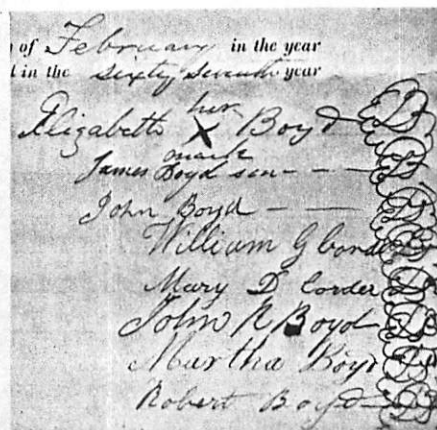 of February in the year
in the sixty seventh year
her
Elizabeth X Boyd
mark
James Boyd sen
John Boyd
William G
Mary D Corder
John R Boyd
Martha Boyd
Robert Boyd